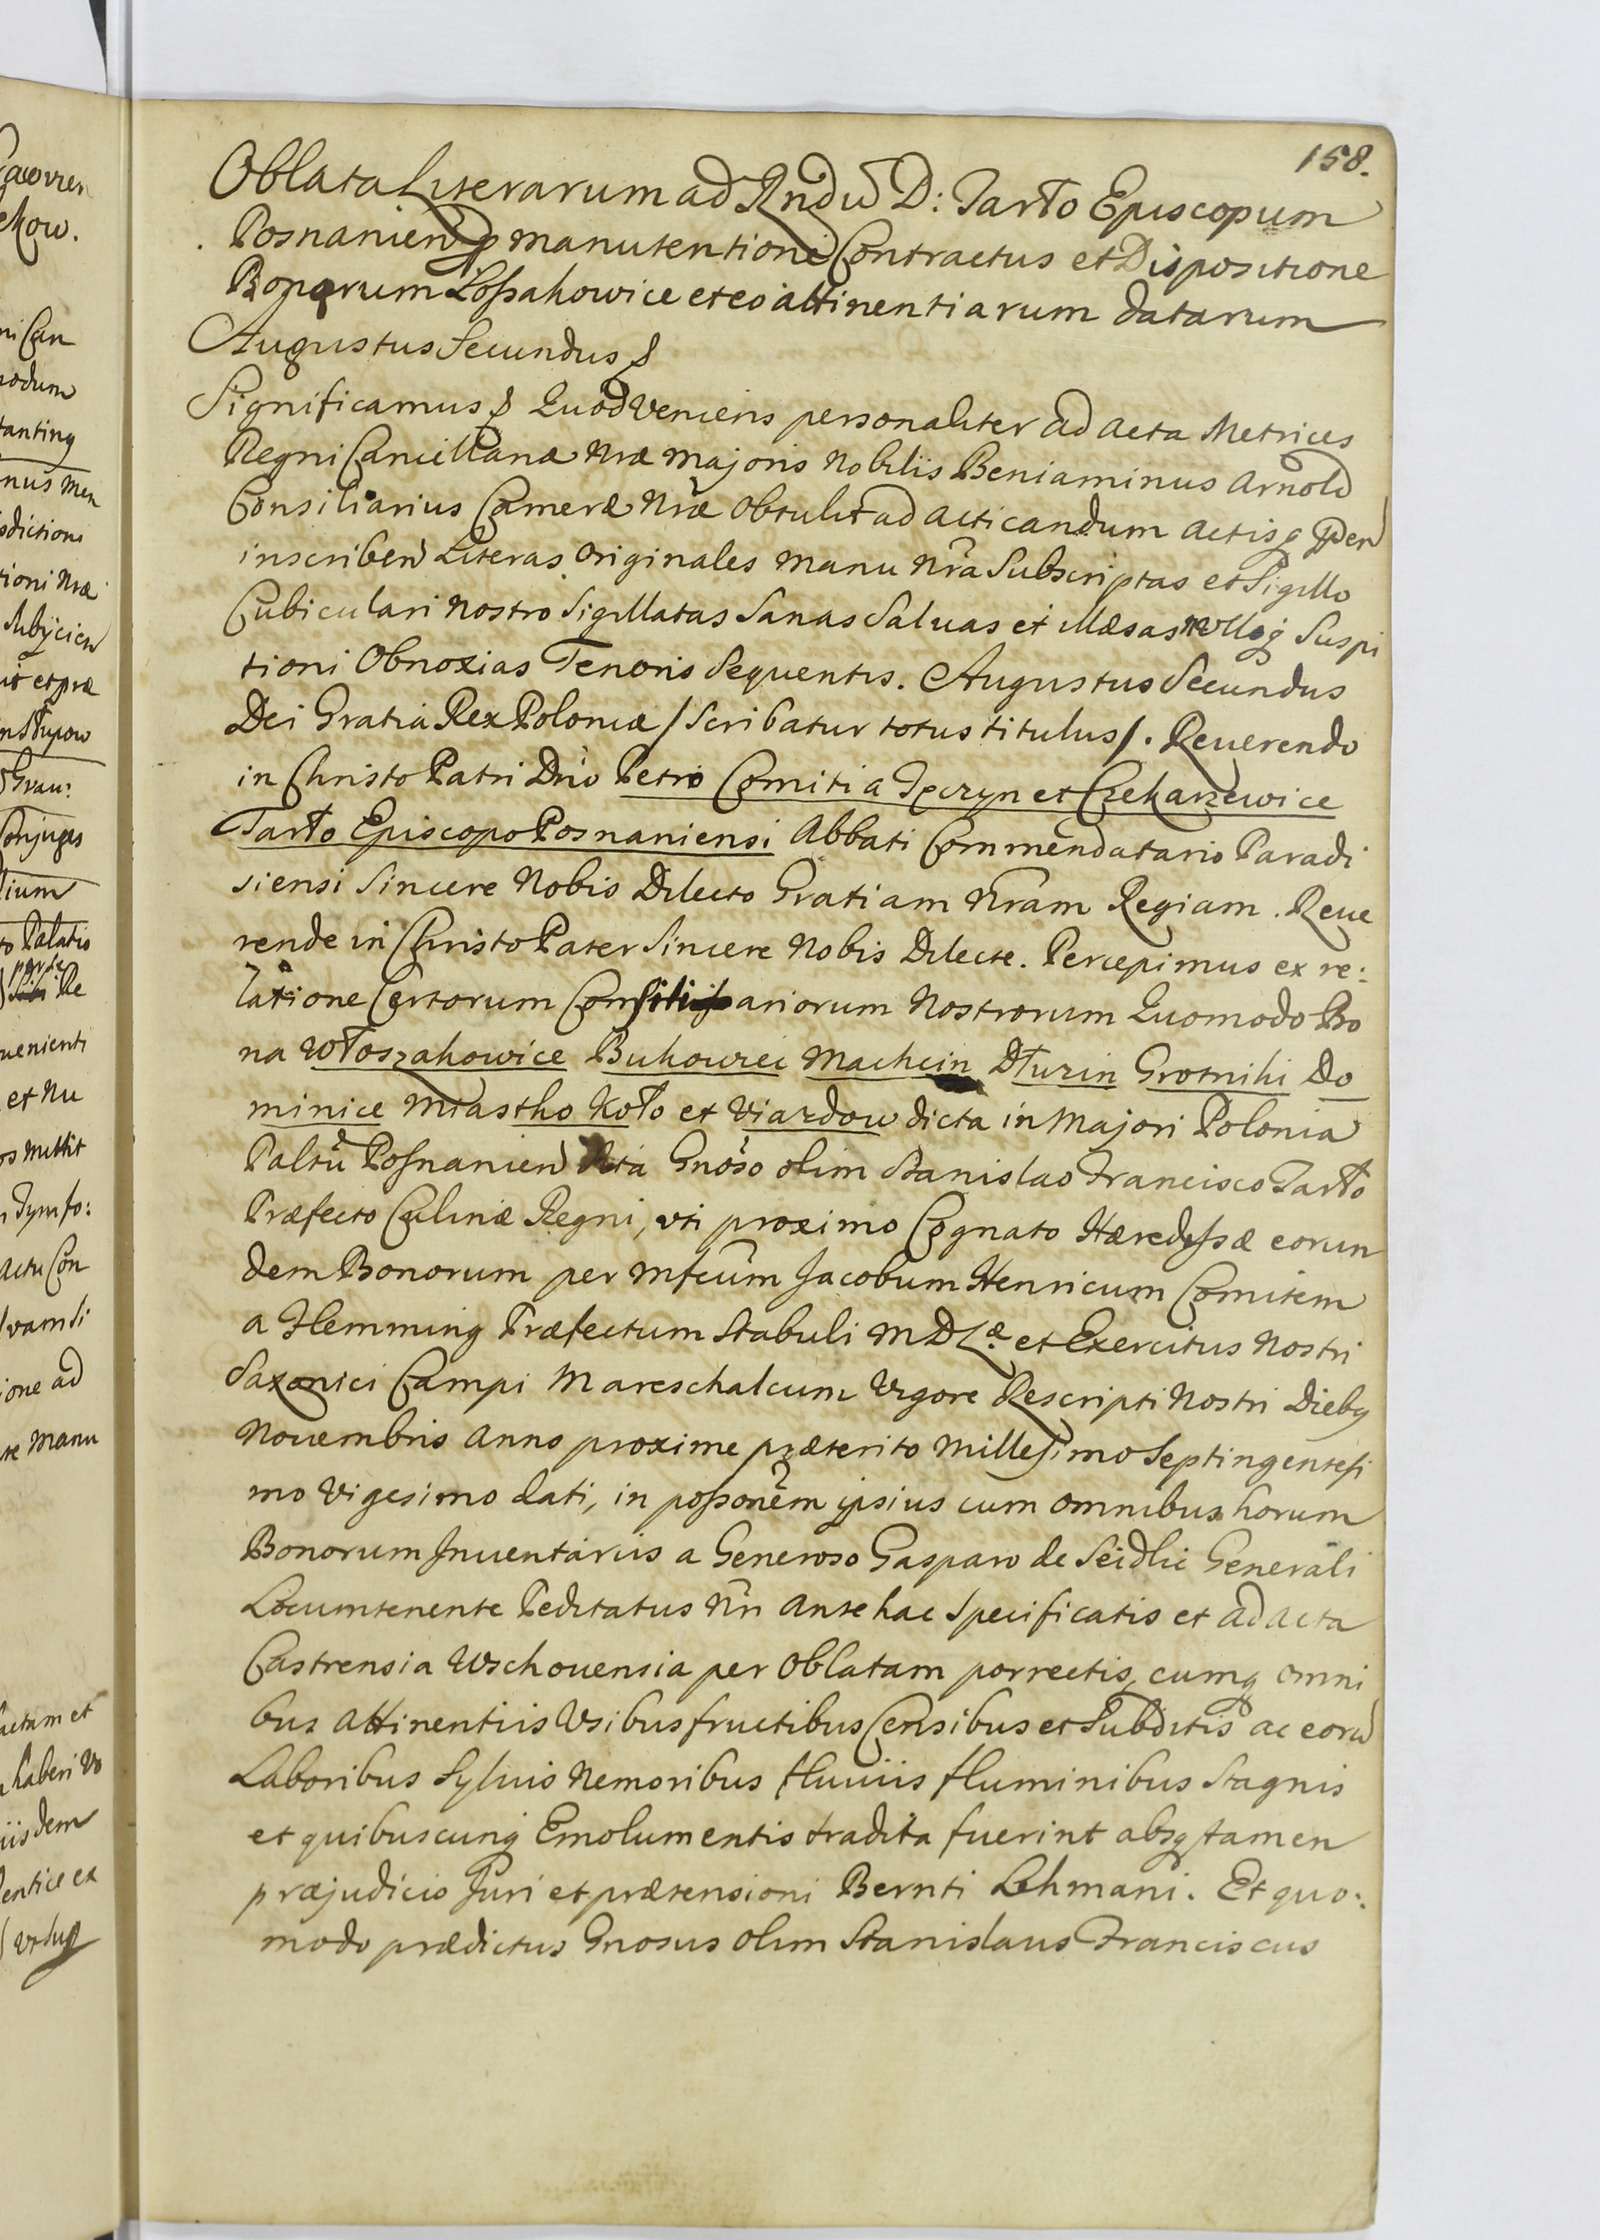 158.
Oblata Literarum ad Rndũ D: Tarło Episcopum
Posnanien p manutentione Contractus et Dispositione
Bonorum Lossakowice et eo attinentiarum datarum
Augustus Secundus &
Significamus & Quod Veniens personaliter ad Acta Metrices
Regni Cancellariæ Nræ Majoris Nobilis Beniaminus Arnold
Consiliarius Cameræ Nræ Obtulit ad acticandum actisq
inscriben Literas Originales manu Nra Subscriptas et Sigillo
Cubiculari Nostro Sigillatas Sanas Saluas et illæsas Nulloq Suspi
tioni Obnoxias Tenoris Sequentis. Augustus Secundus
Dei Gratia Rex Poloniæ / Scribatur totus titulus /. Reuerendo
in Christo Patri Dño Petro Comiti a Teczyn et Czekarzewice
Tarło Episcopo Posnaniensi Abbati Commendatario Paradi
siensi Sincere Nobis Dilecto Gratiam Nram Regiam. Reue
rende in Christo Pater Sincere Nobis Dilecte. Percepimus ex re:
latione Certorum Consiliariorum Nostrorum Quomodo Bo
na Włoszakowice Bukowiec Machcin Dłuzin Grotniki Do
minice Miastko Koło et Viardow dicta in Majori Polonia
Paltũ Posnanien Sita Gnoso olim Stanislao Francisco Tarło
Præfecto Culinæ Regni, uti proximo Cognato Hæredissæ eorun
dem Bonorum per Mfcum Jacobum Henricum Comitem
a Flemming Præfectum Stabuli M D L.æ et Exercitus Nostri
Saxonici Campi Mareschalcum Vigore Rescripti Nostri Diebq
Nouembris Anno proxime præterito Millesimo Septingentesi
mo Vigesimo dati, in possonem ipsius cum omnibus horum
Bonorum Inuentariis a Generoso Gasparo de Seidlic Generali
Locumtenente Peditatus Nri Antehac Specificatis et ad Acta
Castrensia Wschouensia per Oblatam porrectis, cumq omni
bus Attinentiis Vsibus fructibus Censibus et Subditis ac eorũ
Laboribus Syluis Nemoribus fluuiis fluminibus Stagnis
et quibuscunq Emolumentis tradita fuerint absq tamen
præjudicio Juri et prætensioni Bernti Lehmani. Et quo:
modo prædictus Gnosus olim Stanislaus Franciscus